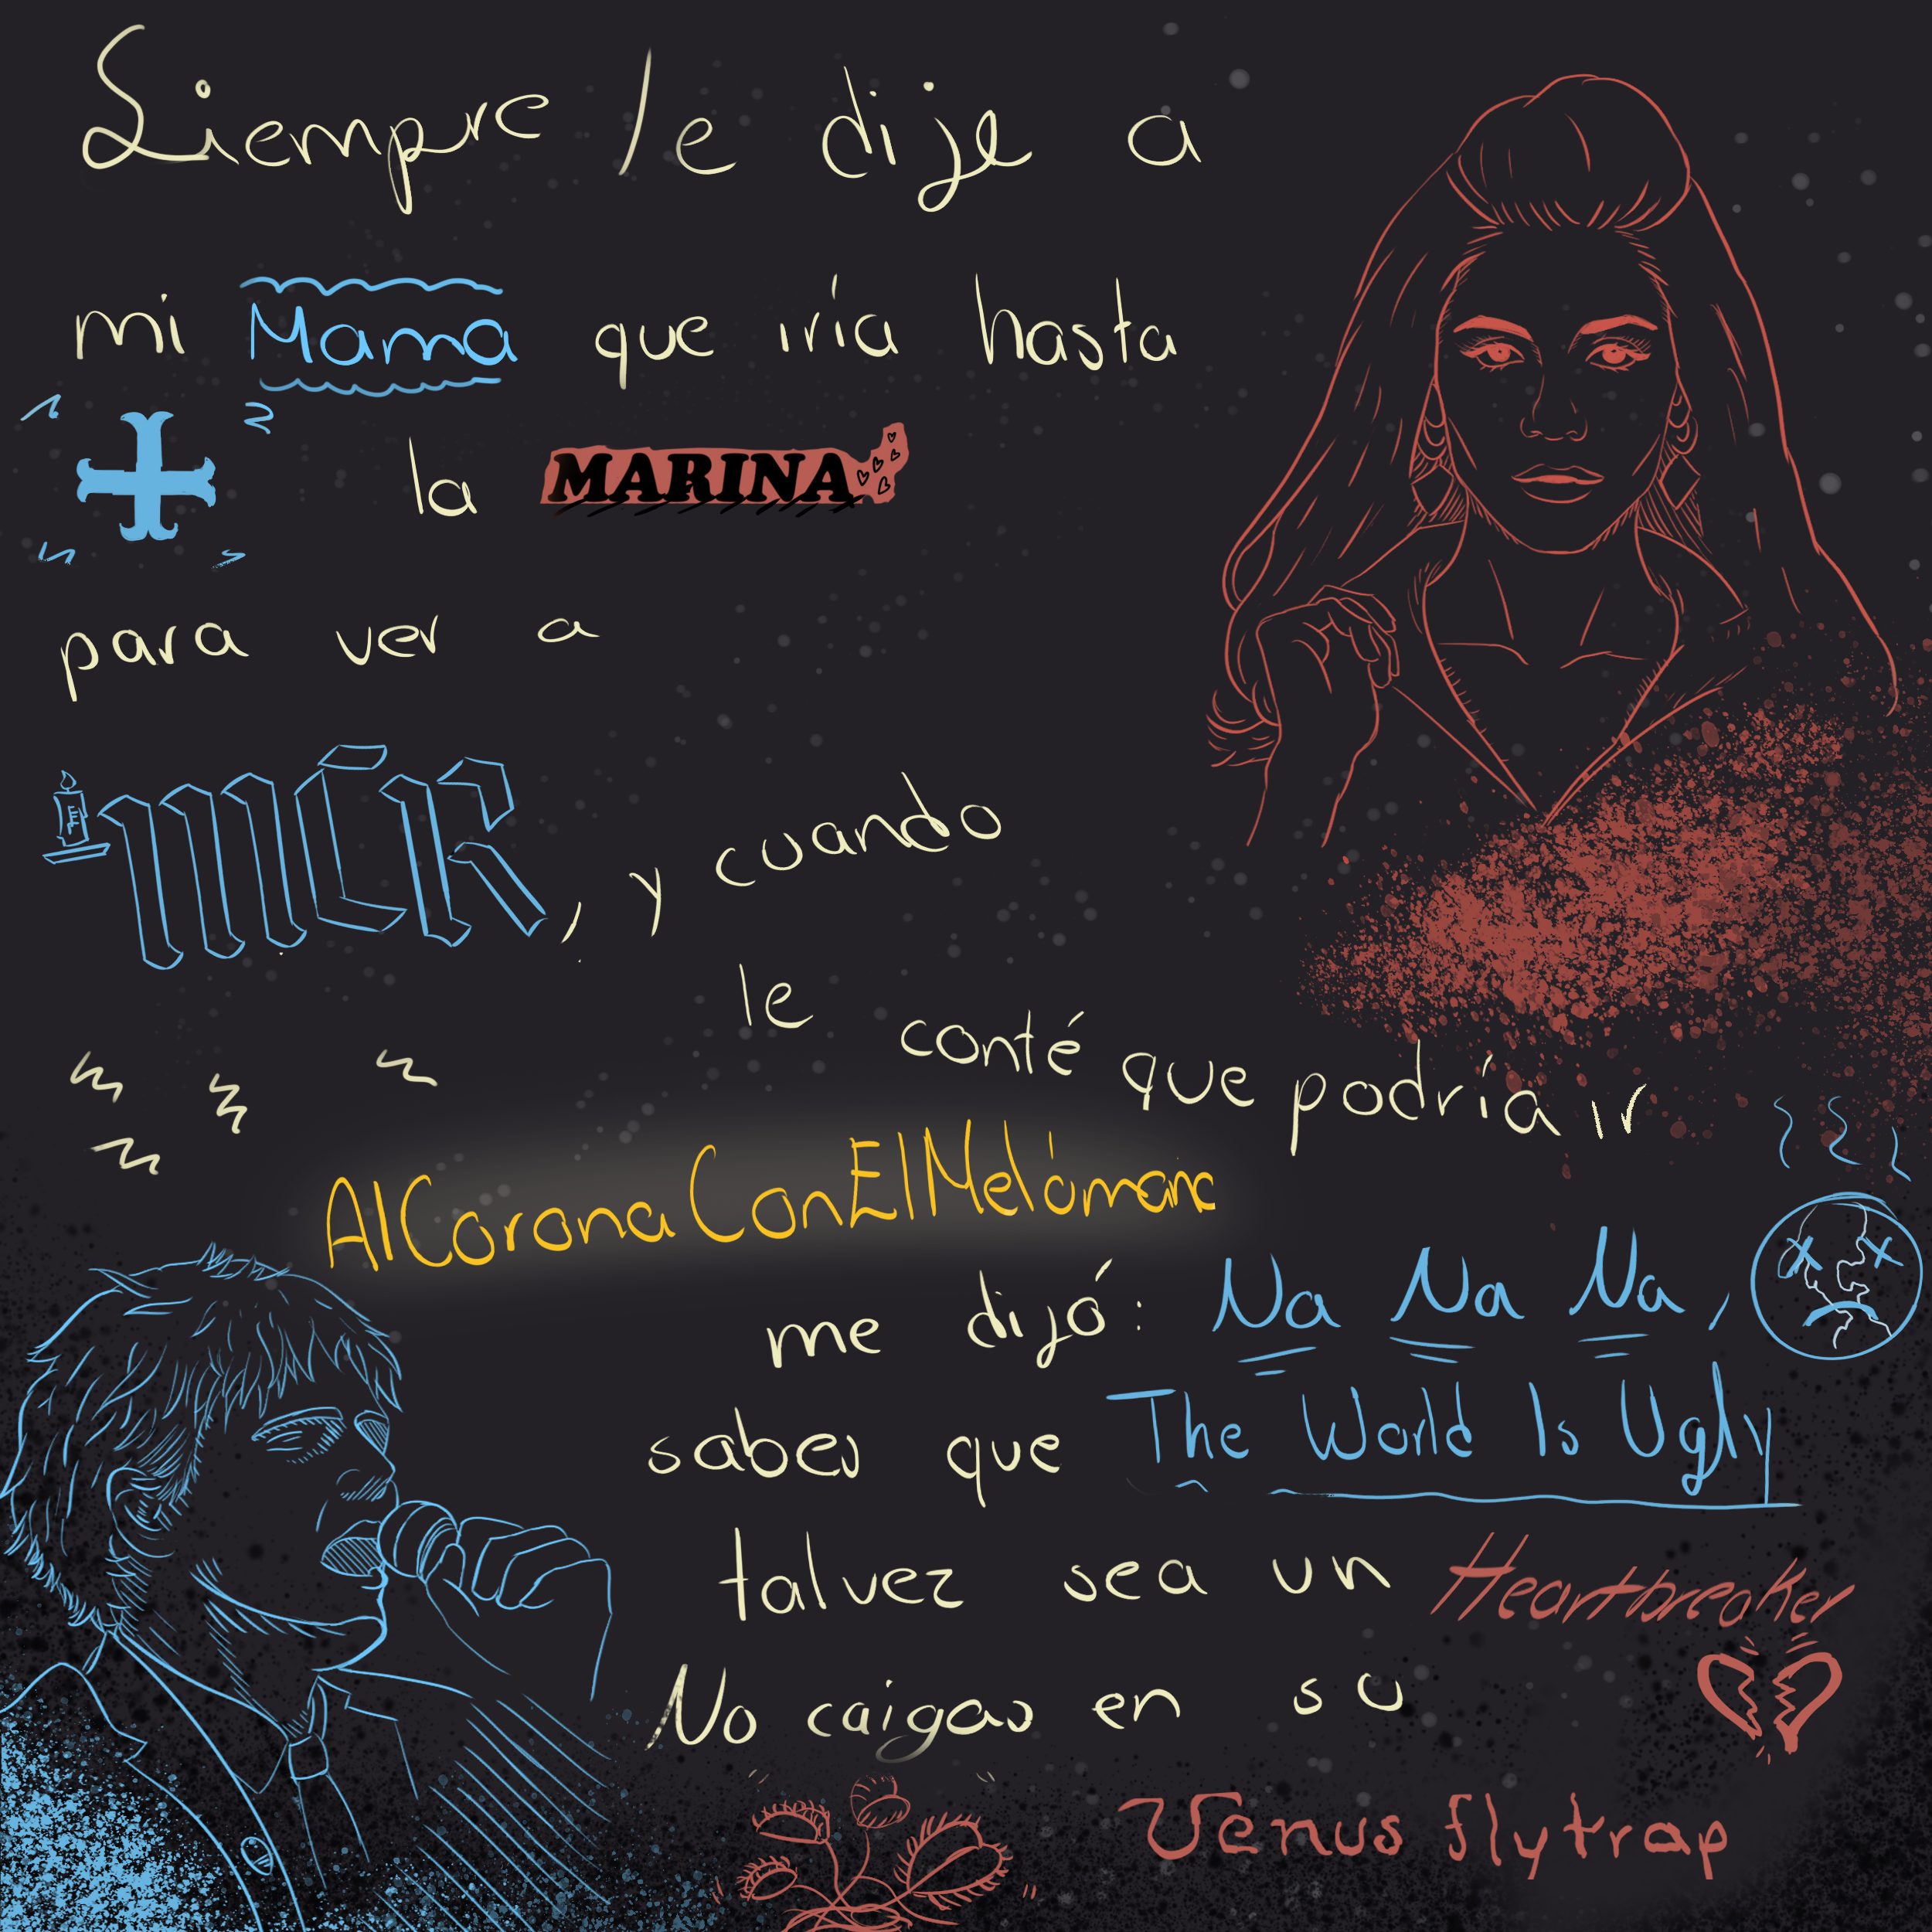 Siempre le dije a
mi Mama que iría hasta
la MARINA
para ver a
MCR, y cuando
le conté que podría ir
AlCoronaConElMelómano
me dijó: Na Na Na,
sabes que The World Is Ugly
talvez sea un Heartbreaker
No caigas en su
Venus flytrap